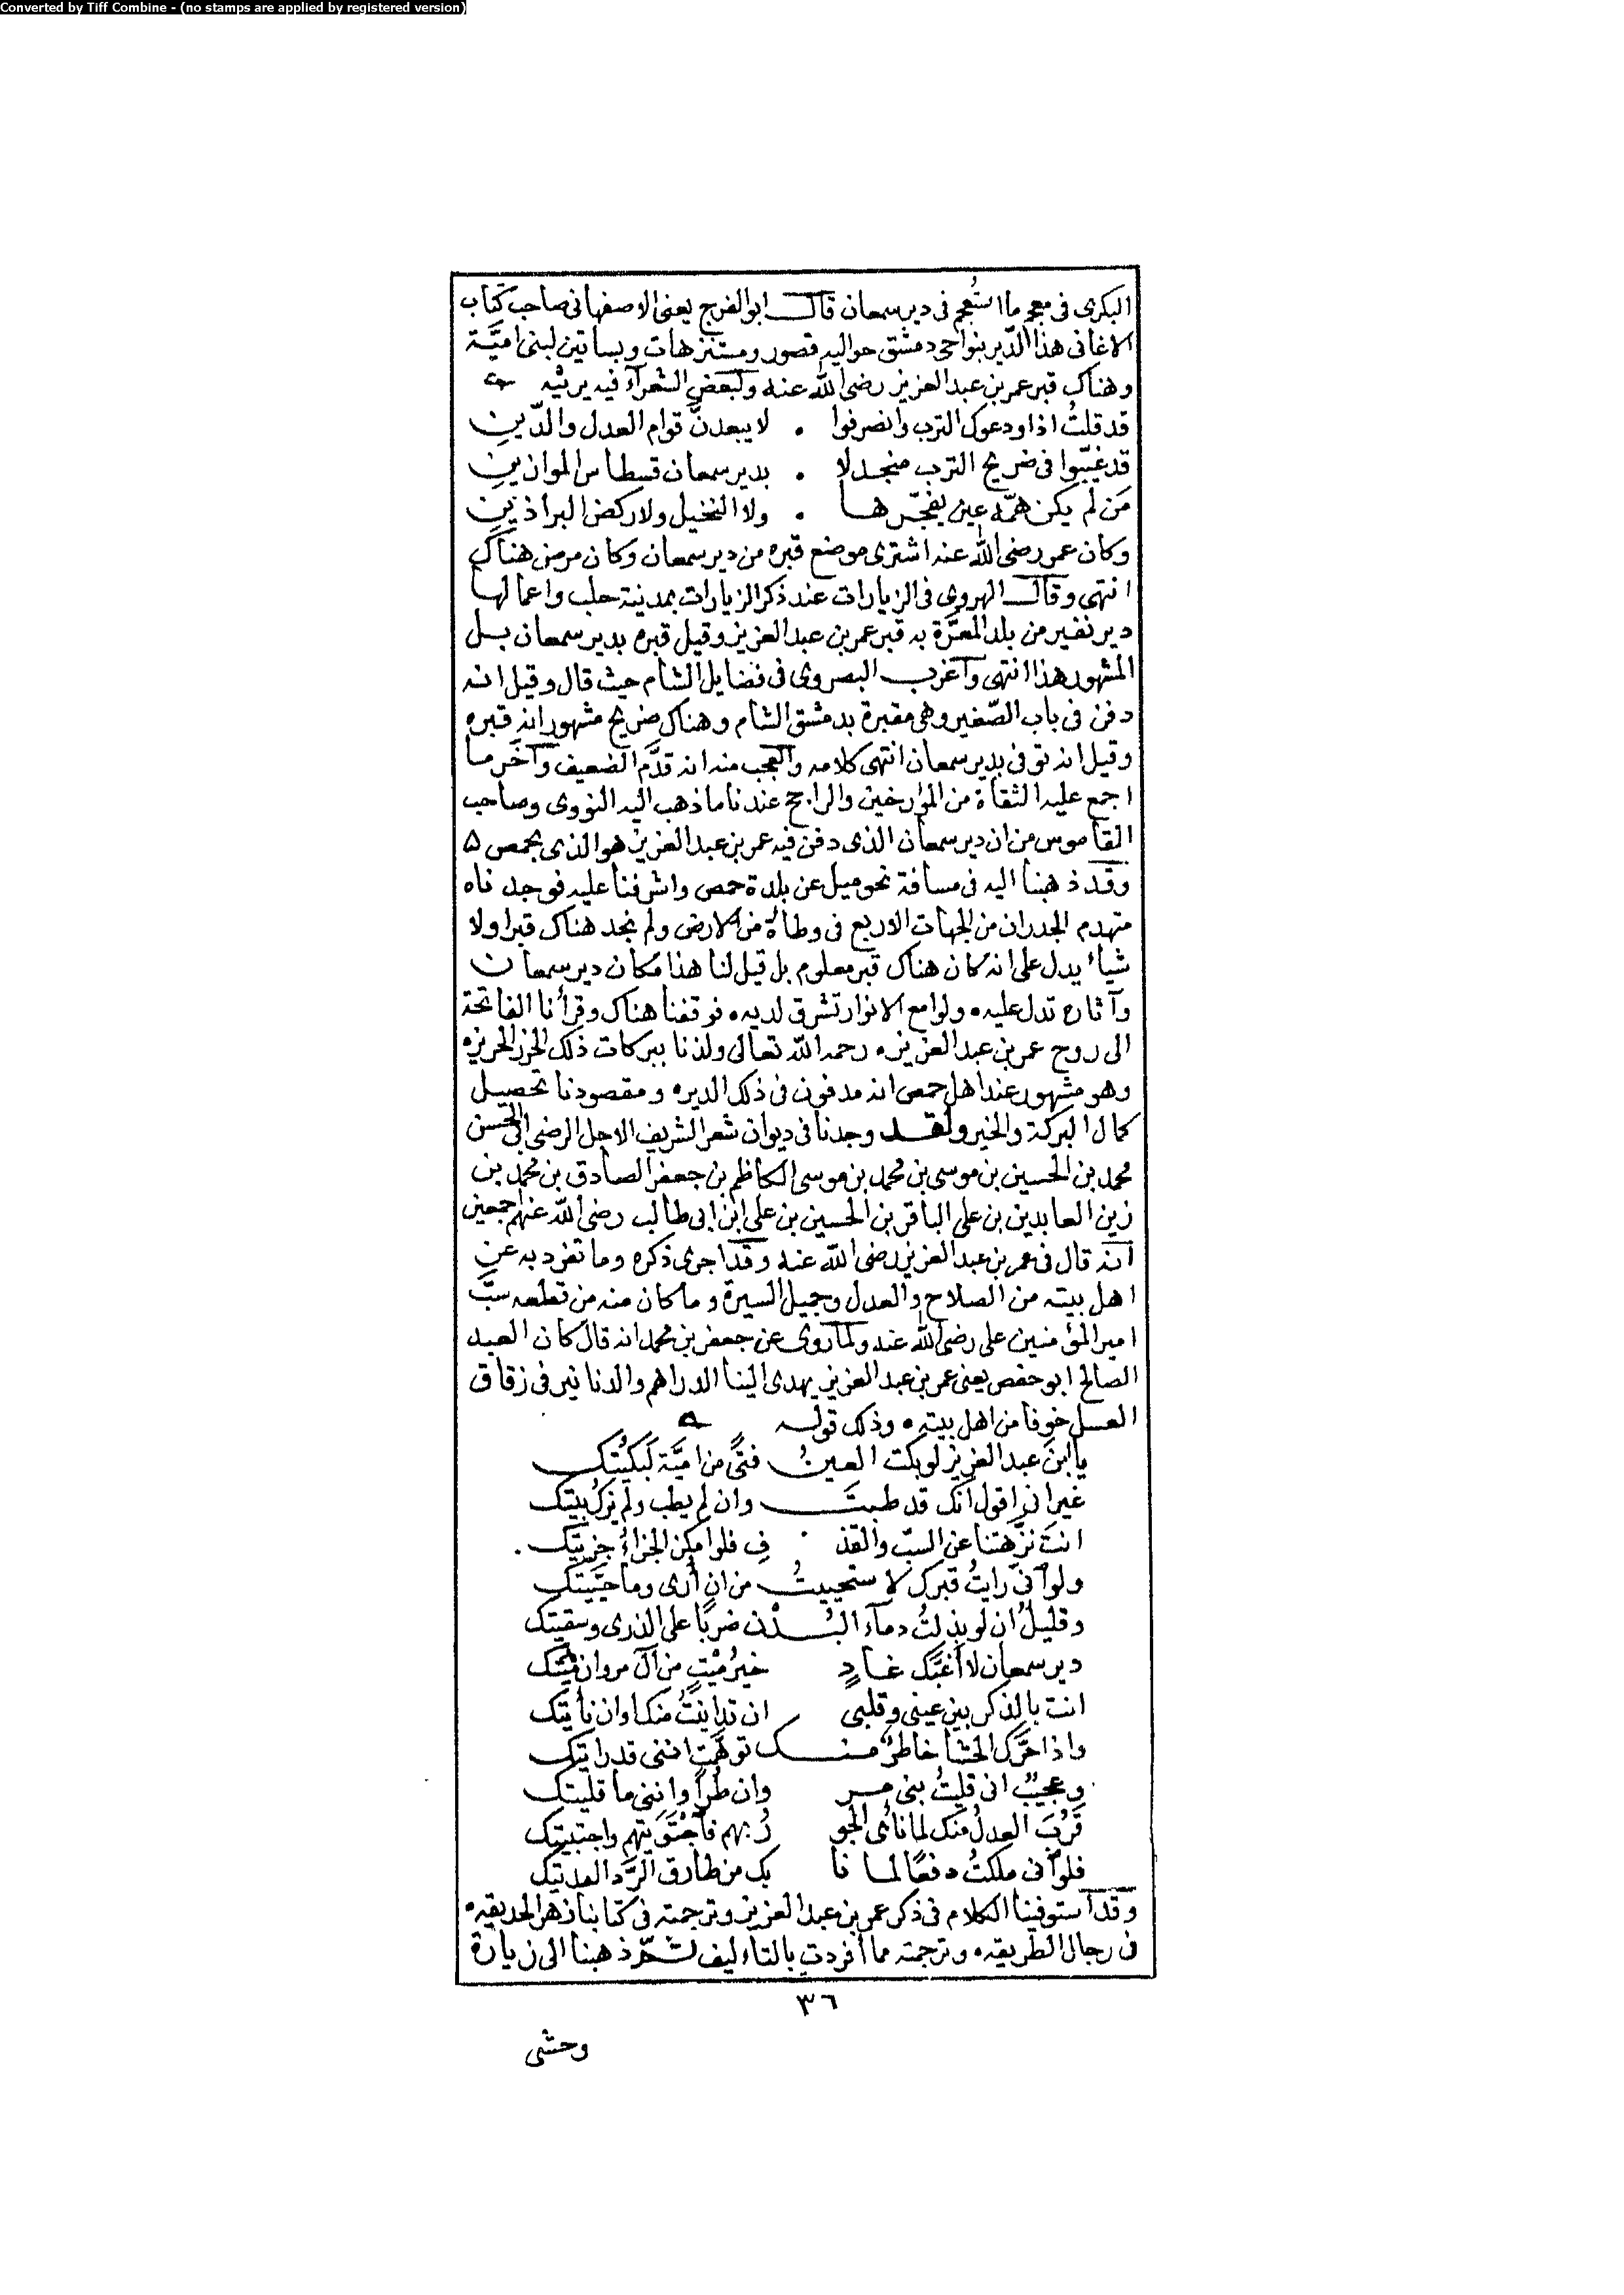 Converted by Tiff Combine - (no stamps are applied by registered version)
البكرى فى معجم ما استُعجم فى دير سمعان قال ابو الفرج يعنى الاصفهانى صاحب كتاب
الاغانى هذا الدّير بنواحى دمشق حواليه قصور ومتنزهات وبساتين لبنى اميَّة
وهناك قبر عمر بن عبد العزيز رضى الله عنه ولبعض الشعرآء فيه يرثيه
قد قلتُ اذ اودعوك الترب وانصرفوا . لا يبعدنَّ قوام العدل والدّينِ
قد غيّبوا فى ضريح الترب منجدلا . بدير سمعان قسطاس الموازينِ
مَن لم يكن همّه عين يفجّرها . ولا النخيل ولا ركض البراذينِ
وكان عمر رضى الله عنه اشترى موضع قبره من دير سمعان وكان مرض هناك
انتهى وقال الهروى فى الزيارات عند ذكر الزيارات بمدينة حلب واعمالها
دير نقير من بلد المعرَّة به قبر عمر بن عبد العزيز وقيل قبره بدير سمعان بل
المشهور هذا انتهى وآغرب البصروى فى فضايل الشام حيث قال وقيل انه
دفن فى باب الصّغير وهى مقبرة بدمشق الشام وهناك ضريح مشهور انه قبره
وقيل انه توفى بدير سمعان انتهى كلامه والعجب منه انه قدَّم الضعيف وآخَّر ما
اجمع عليه الثقاة من المؤرخين والراجح عندنا ما ذهب اليه النووى وصاحب
القاموس من ان دير سمعان الذى دفن فيه عمر بن عبد العزيز هو الذى بحمص ه
وقد ذهبنا اليه فى مسافة نحو ميل عن بلدة حمص واشرفنا عليه فوجدناه
متهدم الجدران من الجهات الاربع فى وطأة من الارض ولم نجد هناك قبرا ولا
شياء يدل على انه كان هناك قبر معلوم بل قيل لنا هذا مكان دير سمعان
وآثاره تدل عليه ه ولوامع الانوار تشرق لديه ه فوقفنا هناك وقرأنا الفاتحة
الى روح عمر بن عبد العزيز ه رحمه الله تعالى ولذنا ببركات ذلك الحرز الحريز ه
وهو مشهور عند اهل حمص انه مدفون فى ذلك الدير ه ومقصودنا تحصيل
كمال البركة والخير ولقد وجدنا فى ديوان شعر الشريف الاجل الرضى ابى الحسن
محمد بن الحسين بن موسى بن محمد بن موسى الكاظم بن جعفر الصادق بن محمد بن
زين العابدين بن على الباقر بن الحسين بن على ابن ابى طالب رضى الله عنهم اجمعين
انه قال فى عمر بن عبد العزيز رضى الله عنه وقد اجرى ذكره وما تفرد به عن
اهل بيته من الصلاح والعدل وجميل السيرة وما كان منه من قطعه سبَّ
امير المؤمنين على رضى الله عنه ولما روى عن جعفر بن محمد انه قال كان العبد
الصالح ابو حفص يعنى عمر بن عبد العزيز يهدى الينا الدراهم والدنانير فى زقاق
العسل خوفا من اهل بيته ه وذلك قوله
يا ابنَ عبد العزيز لو بكت العينُ فتًى من اميَّة لَبكيْتك
غير انى اقول انك قد طبتَ وان لم يطب ولم يزكُ بيتك
انتَ نزَّهتنا عن السبّ والقذ . فِ فلو امكن الجزاءُ جزيتك .
ولو آنى رايتُ قبرك لاستحييتُ من ان أُرى وما حيَّيتك
وقليلٌ ان لو بذلتُ دمآء البُدْن ضربًا على الذرى وسقيتك
دير سمعان لا أغبَّك غادٍ خيرُ ميْتٍ من آل مروان ميْتك
انت بالذكر بين عينى وقلبى ان تدانيْتُ منك او ان نأيتك
واذا حرَّك الحشا خاطرٌ منك توهَّمت اننى قد رايتك
وعجيبٌ انى قليتُ بنى مر وان طُرًّا وإننى ما قليتك
قَرُبَ العدلُ منك لما نائى الجو رُ بهم فآجْتَوَيتهم واجتبيتك
فلو آنى ملكتُ دفعًا لما نا بك من طارق الرَّد العديتك
وقد آستوفينا الكلام فى ذكر عمر بن عبد العزيز وترجمته فى كتابنا زهر الحديقه ه
فى رجال الطريقه ه وترجمته مما أفردت بالتاءليف ثمَّ ذهبنا الى زيارة
٣٦
وحشى